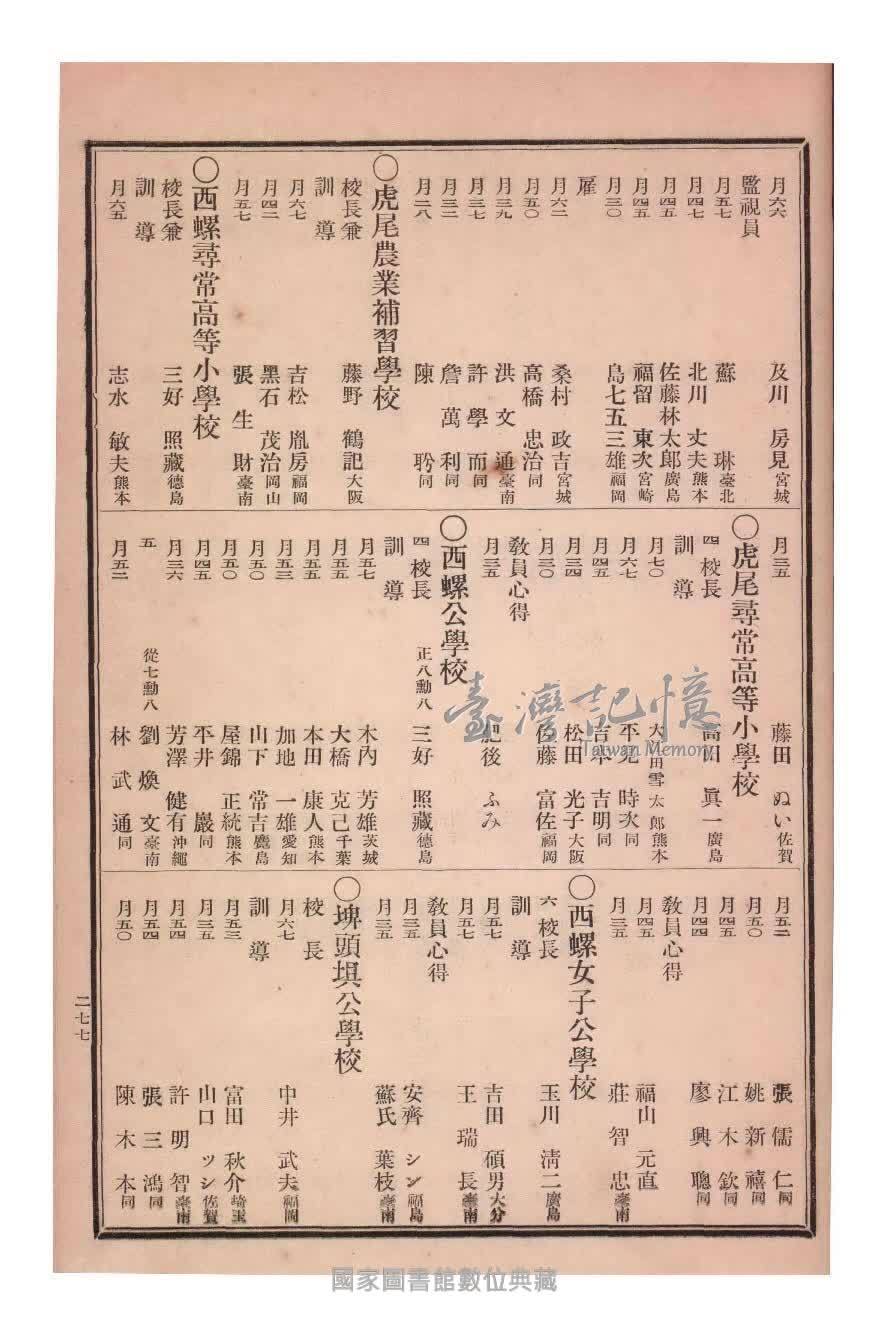 月六六 及川 房見 宮城
監視員
月五七 蘇 琳 臺北
月四七 北川 丈夫 熊本
月四五 佐藤林太郎 廣島
月四五 福留 東次 宮崎
月三〇 島七五三雄 福岡
雇
月六二 桑村 政吉 宮城
月五〇 高橋 忠治 同
月三九 洪 文 通 臺南
月三七 許 學 而 同
月三二 詹 萬 利 同
月二八 陳 聆 同
〇虎尾農業補習學校
校長兼訓導 藤野 鶴記 大阪
月六七 吉松 胤房 福岡
月四二 黑石 茂治 岡山
月五七 張 生 財 臺南
〇西螺尋常高等小學校
校長兼訓導 三好 照藏 德島
月六五 志水 敏夫 熊本
月三五 藤田 ぬい 佐賀
〇虎尾尋常高等小學校
四 校長 高田 眞一 廣島
訓導
月七〇 田雪太郎 熊本
月六七 平見 時次 同
月四五 吉本 吉明 同
月三四 松田 光子 大阪
月三〇 佐藤 富佐 福岡
教員心得
月三五 肥後 ふみ
〇西螺公學校
四 校長 正八勳八 三好 照藏 德島
訓導
月五七 木內 芳雄 茨城
月五五 大橋 克己 千葉
月五五 本田 康人 熊本
月五三 加地 一雄 愛知
月五〇 山下 常吉 鹿島
月五〇 屋錦 正統 熊本
月四五 平井 嚴 同
月三六 芳澤 健有 沖繩
五 從七勳八 劉 煥 文 臺南
月五二 林 武 通 同
月五二 張 儒 仁 同
月五〇 姚 新 禧 同
月四五 江 木 欽 同
月四四 廖 興 聰 同
教員心得
月四五 福山 元直
月三五 莊 智 忠 臺南
〇西螺女子公學校
六 校長 玉川 淸二 廣島
訓導
月五七 吉田 碩男 大分
月五七 王 瑞 長 臺南
教員心得
月三五 安齊 シン 福島
月三五 蘇氏 葉枝 臺南
〇埤頭埧公學校
校長
月六七 中井 武夫 福岡
訓導
月五三 富田 秋介 埼玉
月三五 山口 ツシ 佐賀
月五四 許 明 智 臺南
月五四 張 三 鴻 同
月五〇 陳 木 本 同
二七七
臺灣記憶
Taiwan Memory
國家圖書館數位典藏